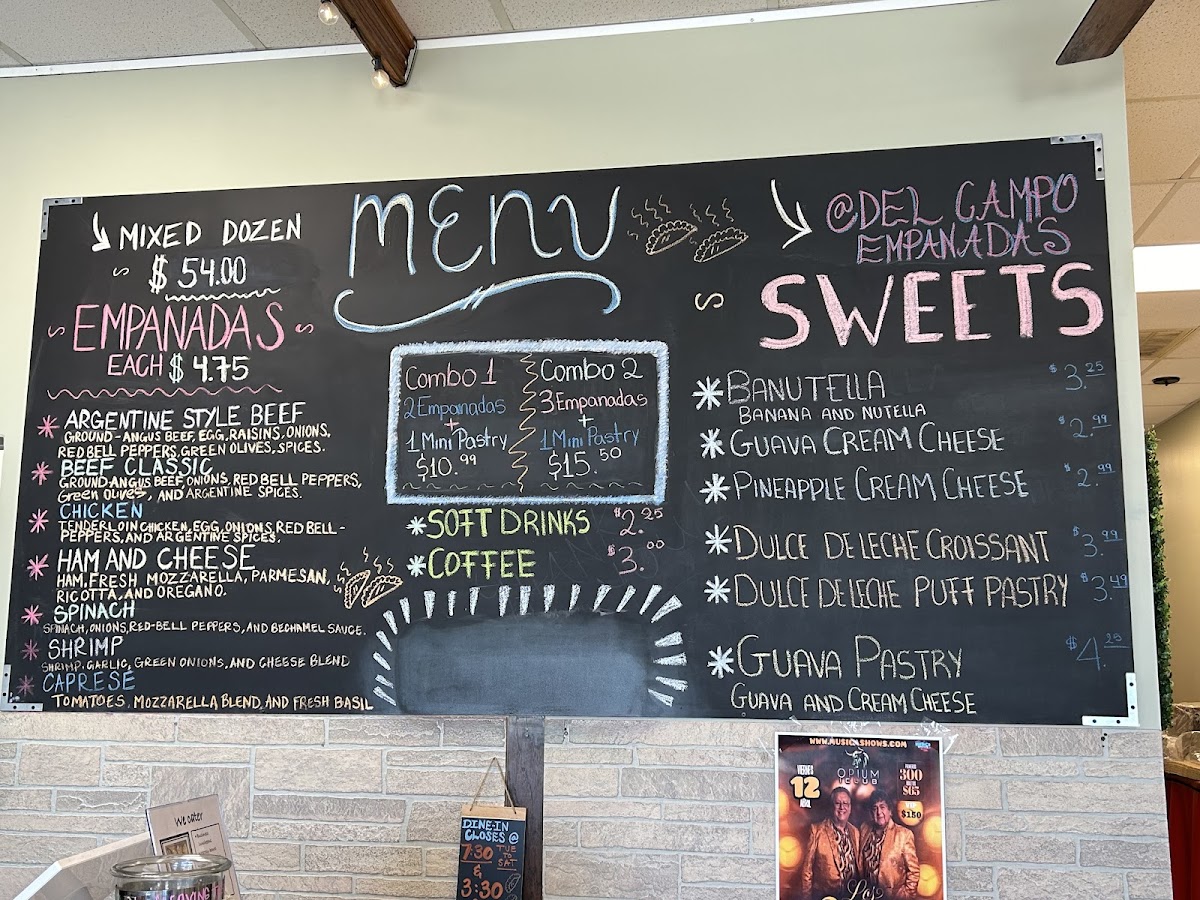 MIXED DOZEN
$ 54.00
EMPANADAS
EACH $ 4.75
ARGENTINE STYLE BEEF
GROUND-ANGUS BEEF, EGG, RAISINS, ONIONS,
RED BELL PEPPERS, GREEN OLIVES, SPICES.
BEEF CLASSIC
GROUND-ANGUS BEEF, ONIONS, RED BELL PEPPERS,
Green Olives, AND ARGENTINE SPICES.
CHICKEN
TENDERLOIN CHICKEN, EGG, ONIONS, RED BELL-
PEPPERS, AND ARGENTINE SPICES.
HAM AND CHEESE
HAM, FRESH MOZZARELLA, PARMESAN,
RICOTTA, AND OREGANO.
SPINACH
SPINACH, ONIONS, RED-BELL PEPPERS, AND BECHAMEL SAUCE.
SHRIMP
SHRIMP, GARLIC, GREEN ONIONS, AND CHEESE BLEND
CAPRESE
TOMATOES, MOZZARELLA BLEND, AND FRESH BASIL
MENU
Combo 1
2 Empanadas
+
1 Mini Pastry
$10.99
Combo 2
3 Empanadas
+
1 Mini Pastry
$15.50
SOFT DRINKS $2.25
COFFEE $3.00
@DEL CAMPO
EMPANADAS
SWEETS
BANUTELLA $3.25
BANANA AND NUTELLA
GUAVA CREAM CHEESE $2.99
PINEAPPLE CREAM CHEESE $2.99
DULCE DE LECHE CROISSANT $3.99
DULCE DE LECHE PUFF PASTRY $3.49
GUAVA PASTRY $4.25
GUAVA AND CREAM CHEESE
We cater
DINE-IN
CLOSES @
7:30 TUE
TO
SAT
&
3:30
WWW.MUSICASHOWS.COM
OPIUM
CLUB
12
ABRIL
300
$65
$150
Los